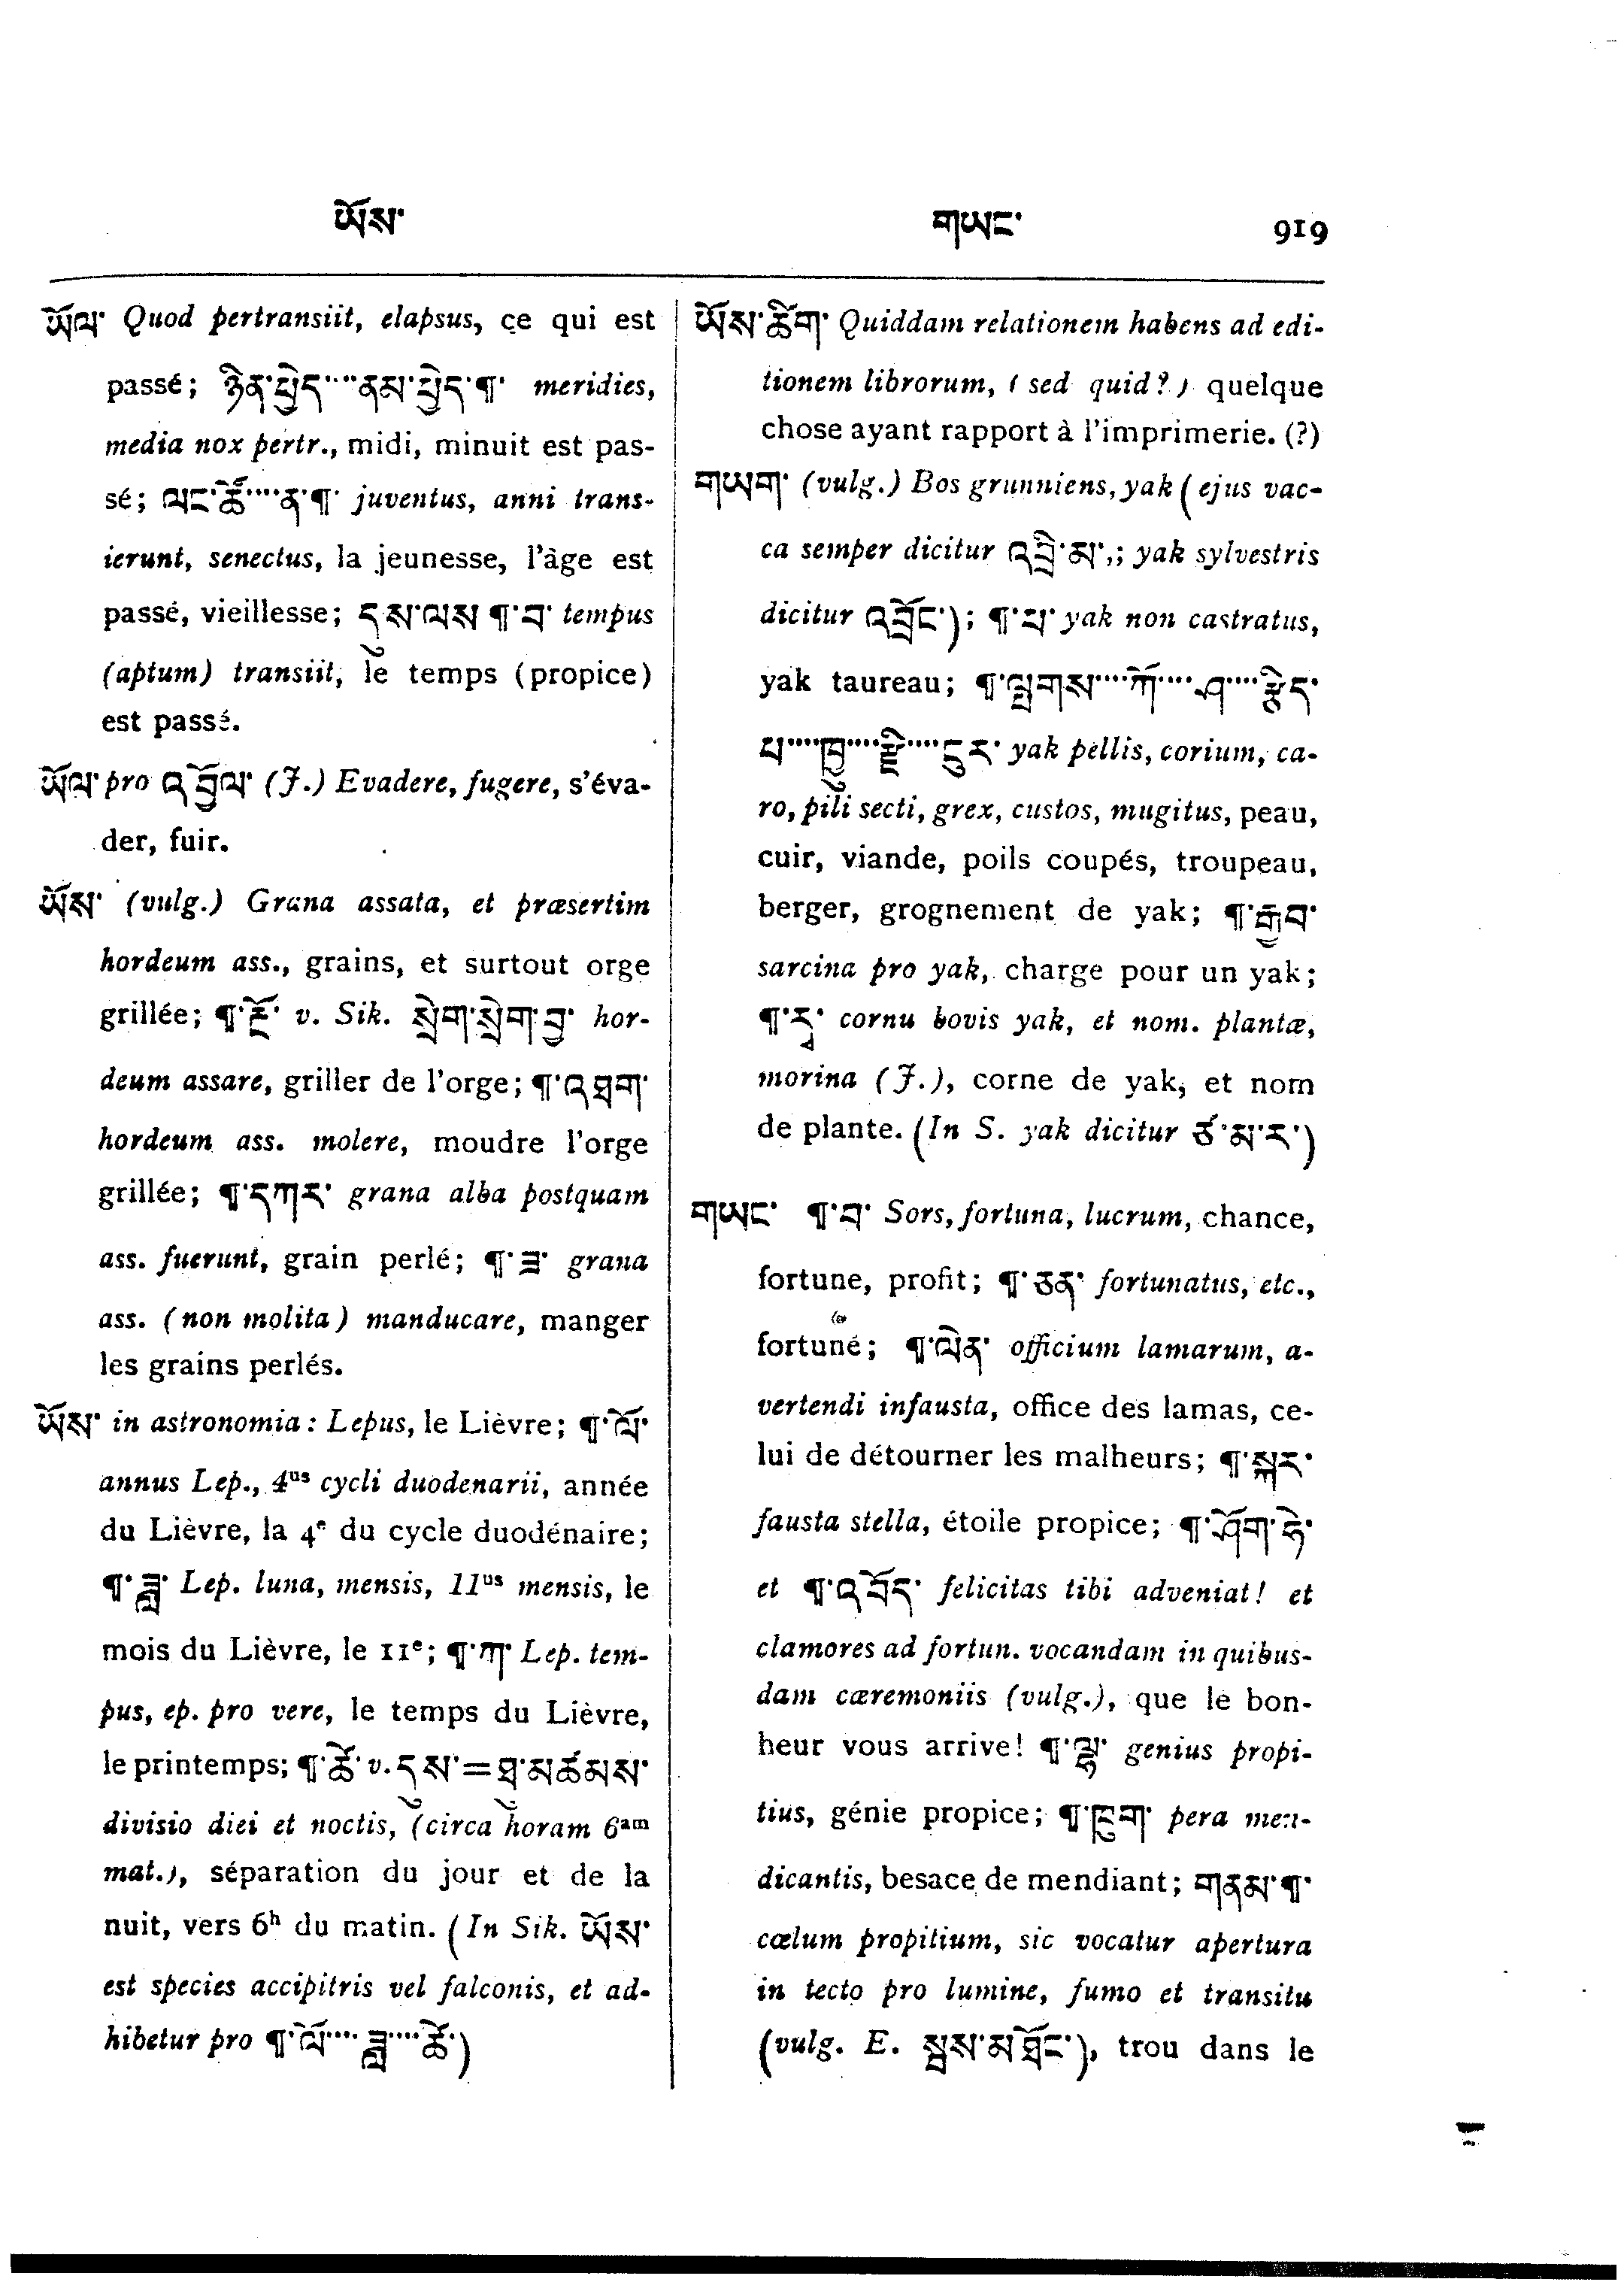 ཡོས་ གཡང་ 919
ཡོལ་ Quod pertransiit, elapsus, ce qui est
passé; ཉིན་ཕྱེད་····ནམ་ཕྱེད་¶་ meridies,
media nox pertr., midi, minuit est pas-
sé; ལང་ཚོ་····ན་¶་ juventus, anni trans-
ierunt, senectus, la jeunesse, l'âge est
passé, vieillesse; དུས་ལས ¶་བ་ tempus
(aptum) transiit, le temps (propice)
est passé.
ཡོལ་ pro འབྱོལ་ (J.) Evadere, fugere, s'éva-
der, fuir.
ཡོས་ (vulg.) Grana assata, et præsertim
hordeum ass., grains, et surtout orge
grillée; ¶་རྔོ་ v. Sik. སྲེག་སྲེག་བྱ་ hor-
deum assare, griller de l'orge; ¶་འཐག་
hordeum ass. molere, moudre l'orge
grillée; ¶་དཀར་ grana alba postquam
ass. fuerunt, grain perlé; ¶་ཟ་ grana
ass. (non molita) manducare, manger
les grains perlés.
ཡོས་ in astronomia: Lepus, le Lièvre; ¶་ལོ་
annus Lep., 4us cycli duodenarii, année
du Lièvre, la 4e du cycle duodénaire;
¶་ཟླ་ Lep. luna, mensis, 11us mensis, le
mois du Lièvre, le 11e; ¶་ཀ་ Lep. tem-
pus, ep. pro vere, le temps du Lièvre,
le printemps; ¶་ཚོ་ v. དུས་=ཐུ་མཚམས་
divisio diei et noctis, (circa horam 6am
mat.), séparation du jour et de la
nuit, vers 6h du matin. (In Sik. ཡོས་
est species accipitris vel falconis, et ad-
hibetur pro ¶་ལོ་····ཟླ····ཚོ་)
ཡོས་ཚིག་ Quiddam relationem habens ad edi-
tionem librorum, (sed quid?) quelque
chose ayant rapport à l'imprimerie. (?)
གཡག་ (vulg.) Bos grunniens, yak (ejus vac-
ca semper dicitur འབྲི་མ་,; yak sylvestris
dicitur འབྲོང་); ¶་པ་ yak non castratus,
yak taureau; ¶་ལྤགས····ཀོ····ཤ····རྩིད་
པ····ཁྱུ····རྫི····ངུར་ yak pellis, corium, ca-
ro, pili secti, grex, custos, mugitus, peau,
cuir, viande, poils coupés, troupeau,
berger, grognement de yak; ¶་རྒྱབ་
sarcina pro yak, charge pour un yak;
¶་རྭ་ cornu bovis yak, et nom. plantæ,
morina (J.), corne de yak, et nom
de plante. (In S. yak dicitur ཙ་མ་ར་)
གཡང་ ¶་བ་ Sors, fortuna, lucrum, chance,
fortune, profit; ¶་ཅན་ fortunatus, etc.,
fortuné; ¶་ལེན་ officium lamarum, a-
vertendi infausta, office des lamas, ce-
lui de détourner les malheurs; ¶་སྐར་
fausta stella, étoile propice; ¶་ཤོག་ཧེ་
et ¶་འབོད་ felicitas tibi adveniat! et
clamores ad fortun. vocandam in quibus-
dam cæremoniis (vulg.), que le bon-
heur vous arrive! ¶་ལྷ་ genius propi-
tius, génie propice; ¶་ཁུག་ pera men-
dicantis, besace de mendiant; གནམ་¶་
cœlum propitium, sic vocatur apertura
in tecto pro lumine, fumo et transitu
(vulg. E. སྦས་མཐོང་), trou dans le